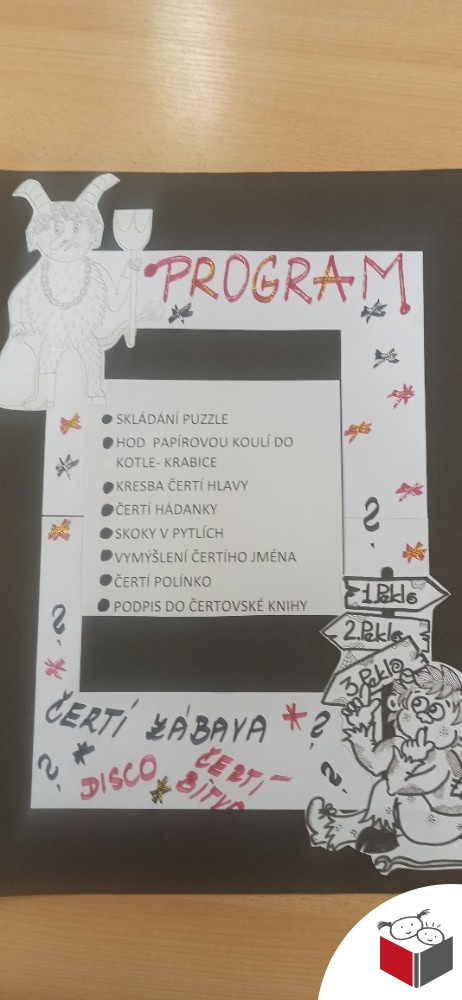 PROGRAM
SKLÁDÁNÍ PUZZLE
HOD PAPÍROVOU KOULÍ DO
KOTLE- KRABICE
KRESBA ČERTÍ HLAVY
ČERTÍ HÁDANKY
SKOKY V PYTLÍCH
VYMÝŠLENÍ ČERTÍHO JMÉNA
ČERTÍ POLÍNKO
PODPIS DO ČERTOVSKÉ KNIHY
1.Peklo
2.Peklo
3.Peklo
ČERTÍ ZÁBAVA
DISCO
ČERTÍ
BITVA